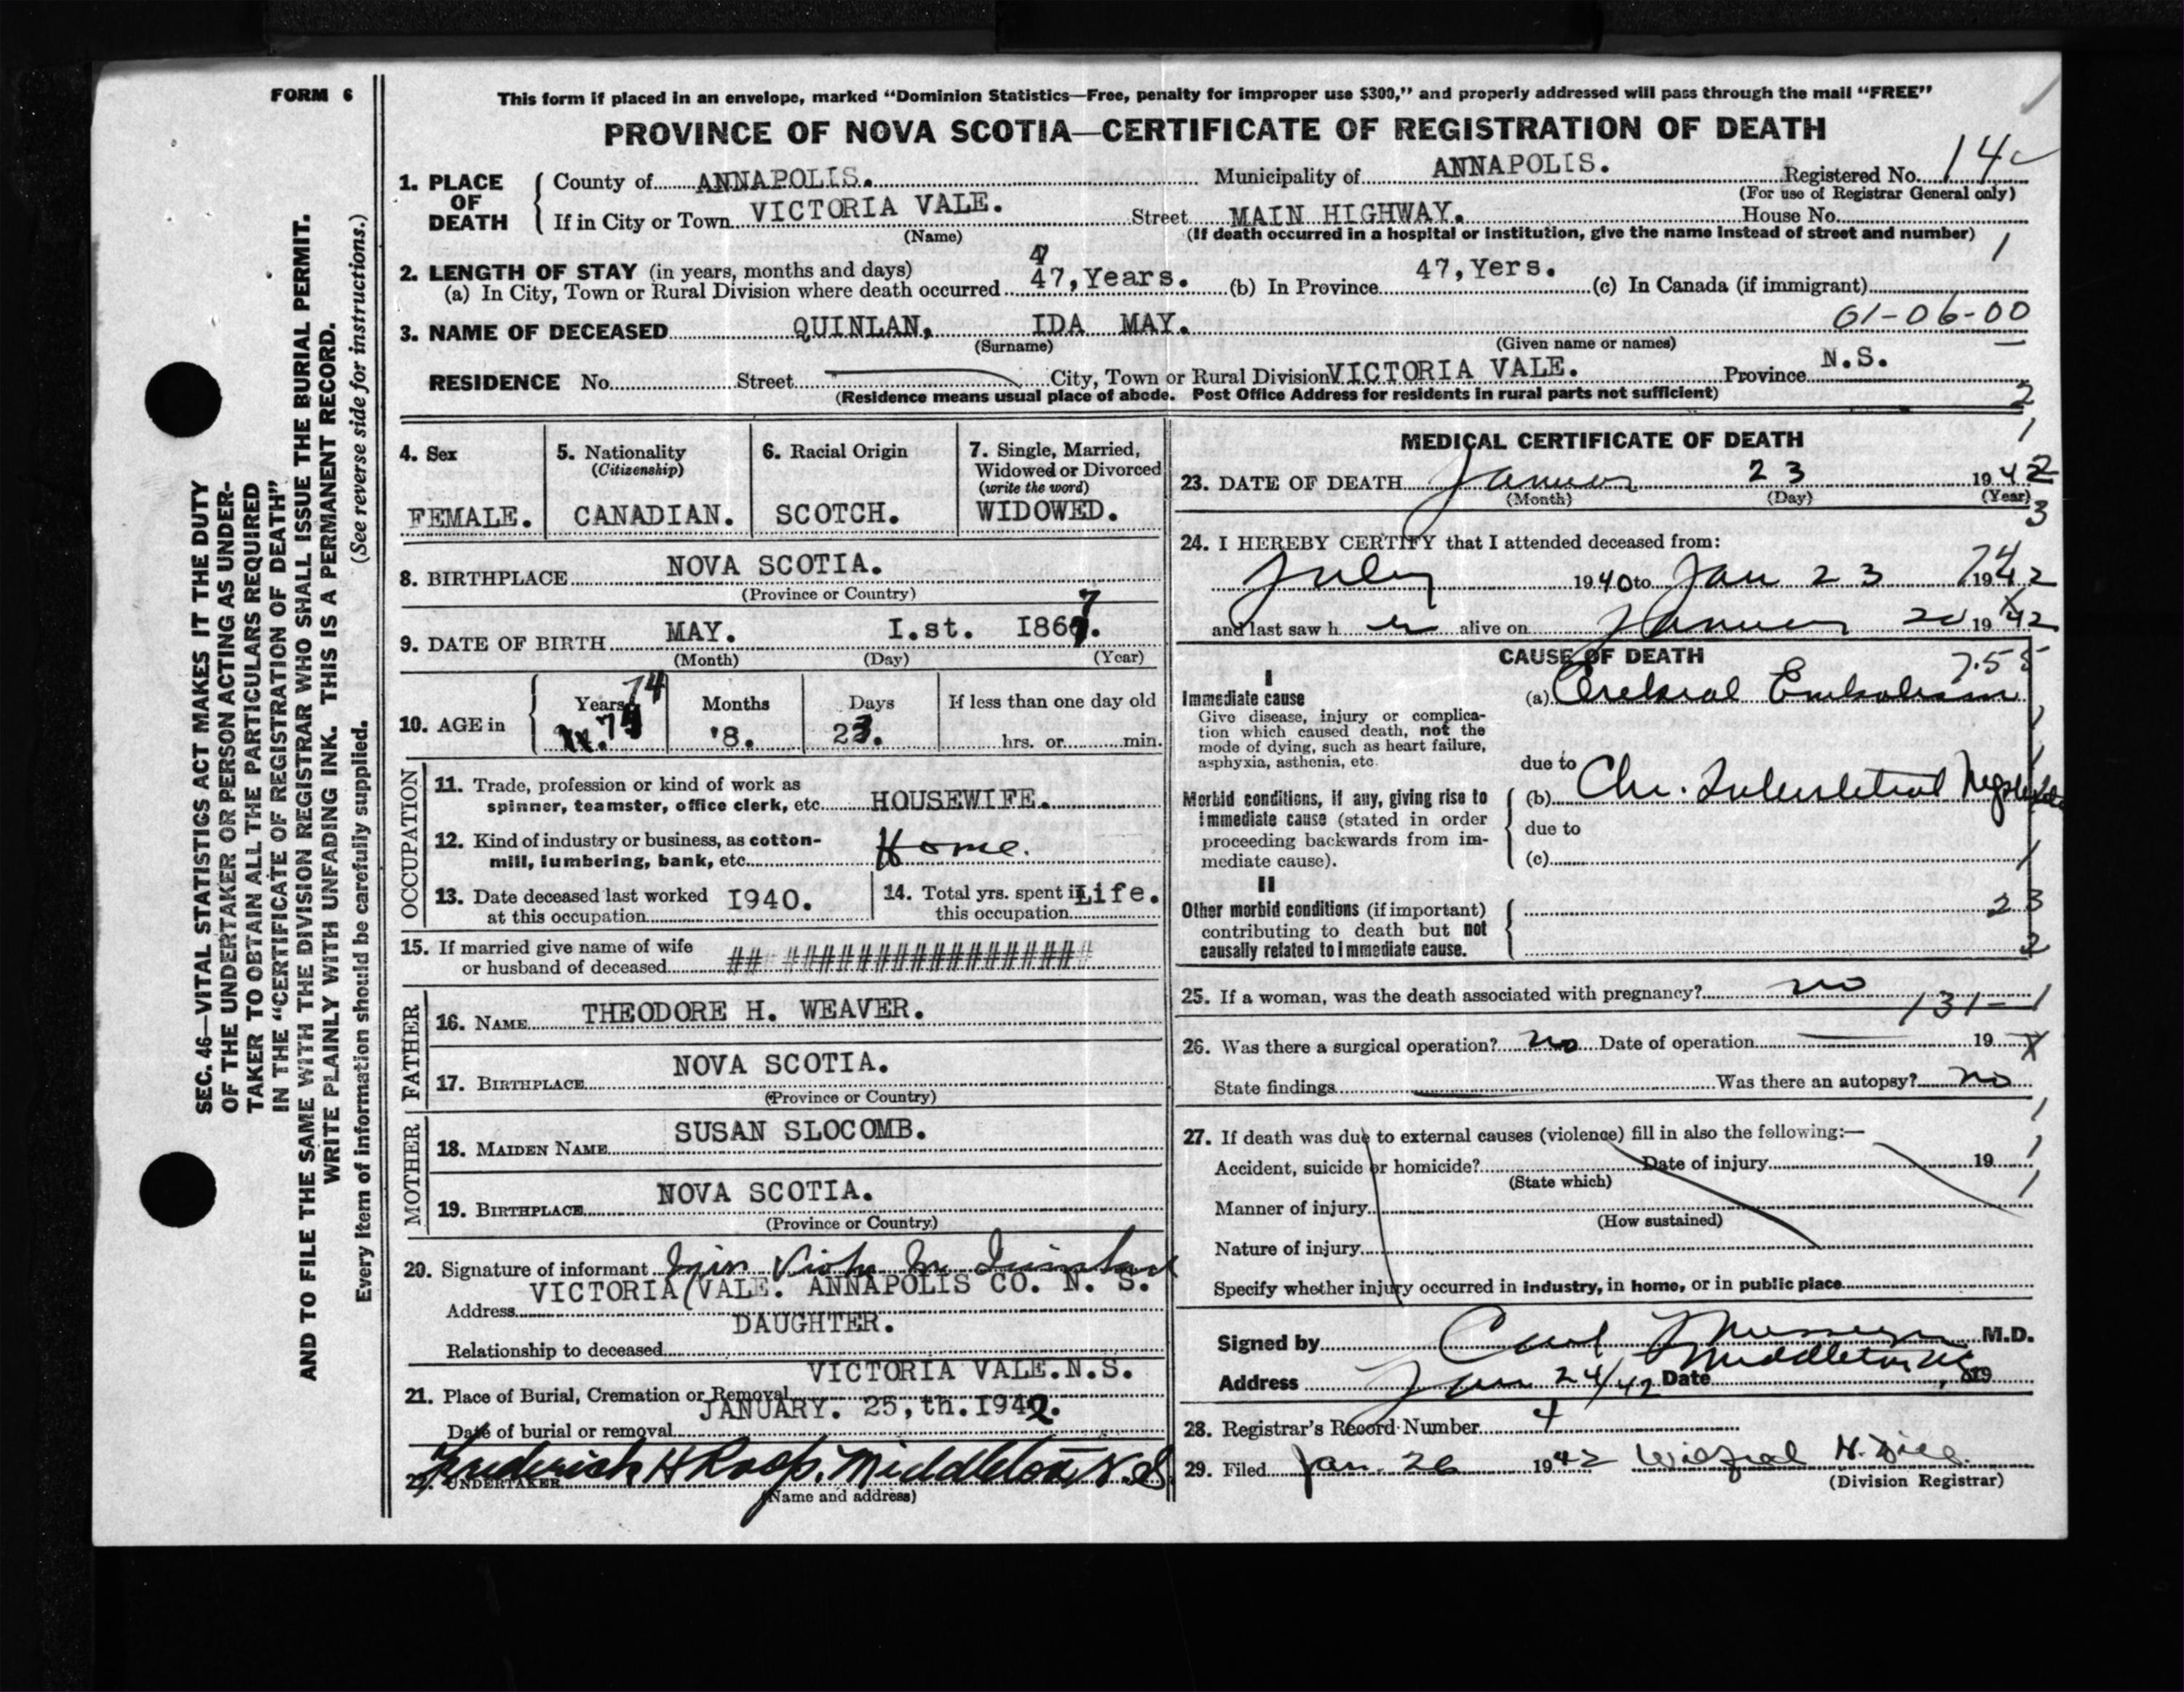 FORM 6
This form if placed in an envelope, marked “Dominion Statistics—Free, penalty for improper use $300,” and properly addressed will pass through the mail “FREE”
PROVINCE OF NOVA SCOTIA—CERTIFICATE OF REGISTRATION OF DEATH
SEC. 46—VITAL STATISTICS ACT MAKES IT THE DUTY
OF THE UNDERTAKER OR PERSON ACTING AS UNDER-
TAKER TO OBTAIN ALL THE PARTICULARS REQUIRED
IN THE “CERTIFICATE OF REGISTRATION OF DEATH”
AND TO FILE THE SAME WITH THE DIVISION REGISTRAR WHO SHALL ISSUE THE BURIAL PERMIT.
WRITE PLAINLY WITH UNFADING INK. THIS IS A PERMANENT RECORD.
Every item of information should be carefully supplied. (See reverse side for instructions.)
1. PLACE OF DEATH
County of ANNAPOLIS. Municipality of ANNAPOLIS. Registered No. 14
(For use of Registrar General only)
If in City or Town VICTORIA VALE. Street MAIN HIGHWAY. House No.
(Name) (If death occurred in a hospital or institution, give the name instead of street and number)
2. LENGTH OF STAY (in years, months and days)
(a) In City, Town or Rural Division where death occurred 47, Years. (b) In Province 47, Yers. (c) In Canada (if immigrant)
3. NAME OF DECEASED QUINLAN, IDA MAY. 61-06-00
(Surname) (Given name or names)
RESIDENCE No. Street City, Town or Rural Division VICTORIA VALE. Province N.S.
(Residence means usual place of abode. Post Office Address for residents in rural parts not sufficient)
4. Sex
FEMALE.
5. Nationality
(Citizenship)
CANADIAN.
6. Racial Origin
SCOTCH.
7. Single, Married,
Widowed or Divorced
(write the word)
WIDOWED.
8. BIRTHPLACE NOVA SCOTIA.
(Province or Country)
9. DATE OF BIRTH MAY. I.st. I867.
(Month) (Day) (Year)
10. AGE in Years 74 Months 8. Days 23. If less than one day old
hrs. or min.
OCCUPATION
11. Trade, profession or kind of work as
spinner, teamster, office clerk, etc. HOUSEWIFE.
12. Kind of industry or business, as cotton-
mill, lumbering, bank, etc. Home.
13. Date deceased last worked
at this occupation I940.
14. Total yrs. spent in
this occupation Life.
15. If married give name of wife
or husband of deceased ## ################
FATHER
16. NAME THEODORE H. WEAVER.
17. BIRTHPLACE NOVA SCOTIA.
(Province or Country)
MOTHER
18. MAIDEN NAME SUSAN SLOCOMB.
19. BIRTHPLACE NOVA SCOTIA.
(Province or Country)
20. Signature of informant Viola M Quinlan
Address VICTORIA VALE. ANNAPOLIS CO. N. S.
Relationship to deceased DAUGHTER.
21. Place of Burial, Cremation or Removal VICTORIA VALE.N.S.
Date of burial or removal JANUARY. 25,th. I942.
22. UNDERTAKER Frederick H Roop, Middleton, N.S.
(Name and address)
MEDICAL CERTIFICATE OF DEATH
23. DATE OF DEATH 23 1942
(Month) (Day) (Year)
24. I HEREBY CERTIFY that I attended deceased from:
July 1940 to Jan 23 1942
and last saw h er alive on 20 1942
CAUSE OF DEATH
I
Immediate cause
Give disease, injury or complica-
tion which caused death, not the
mode of dying, such as heart failure,
asphyxia, asthenia, etc.
(a) Cerebral Embolism
due to
Morbid conditions, if any, giving rise to
immediate cause (stated in order
proceeding backwards from im-
mediate cause).
(b) Chr. Interstitial Nephritis
due to
(c)
II
Other morbid conditions (if important)
contributing to death but not
causally related to immediate cause.
25. If a woman, was the death associated with pregnancy? no
131-1
26. Was there a surgical operation? no Date of operation 19
State findings Was there an autopsy? no
27. If death was due to external causes (violence) fill in also the following:—
Accident, suicide or homicide? Date of injury 19
(State which)
Manner of injury
(How sustained)
Nature of injury
Specify whether injury occurred in industry, in home, or in public place
Signed by M.D.
Address Jan 24/42 Date Middleton, NS 19
28. Registrar's Record Number 4
29. Filed Jan. 26 1942
(Division Registrar)